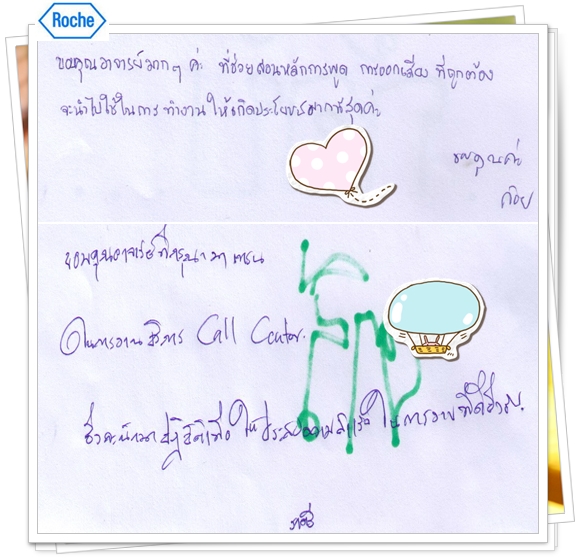 Roche
ขอบคุณอาจารย์มากๆ ค่ะ ที่ช่วยสอนหลักการพูด การออกเสียง ที่ถูกต้อง
จะนำไปใช้ในการ ทำงาน ให้เกิดประโยชน์มากที่สุดค่ะ
ขอบคุณค่ะ
ก้อย
ขอบคุณอาจารย์ที่กรุณา มา เทรน
ในการงานบริการ Call Center.
ซึ่งจะนำมาปฏิบัติเพื่อ ให้ประสบความสำเร็จ ในการงานที่ดี